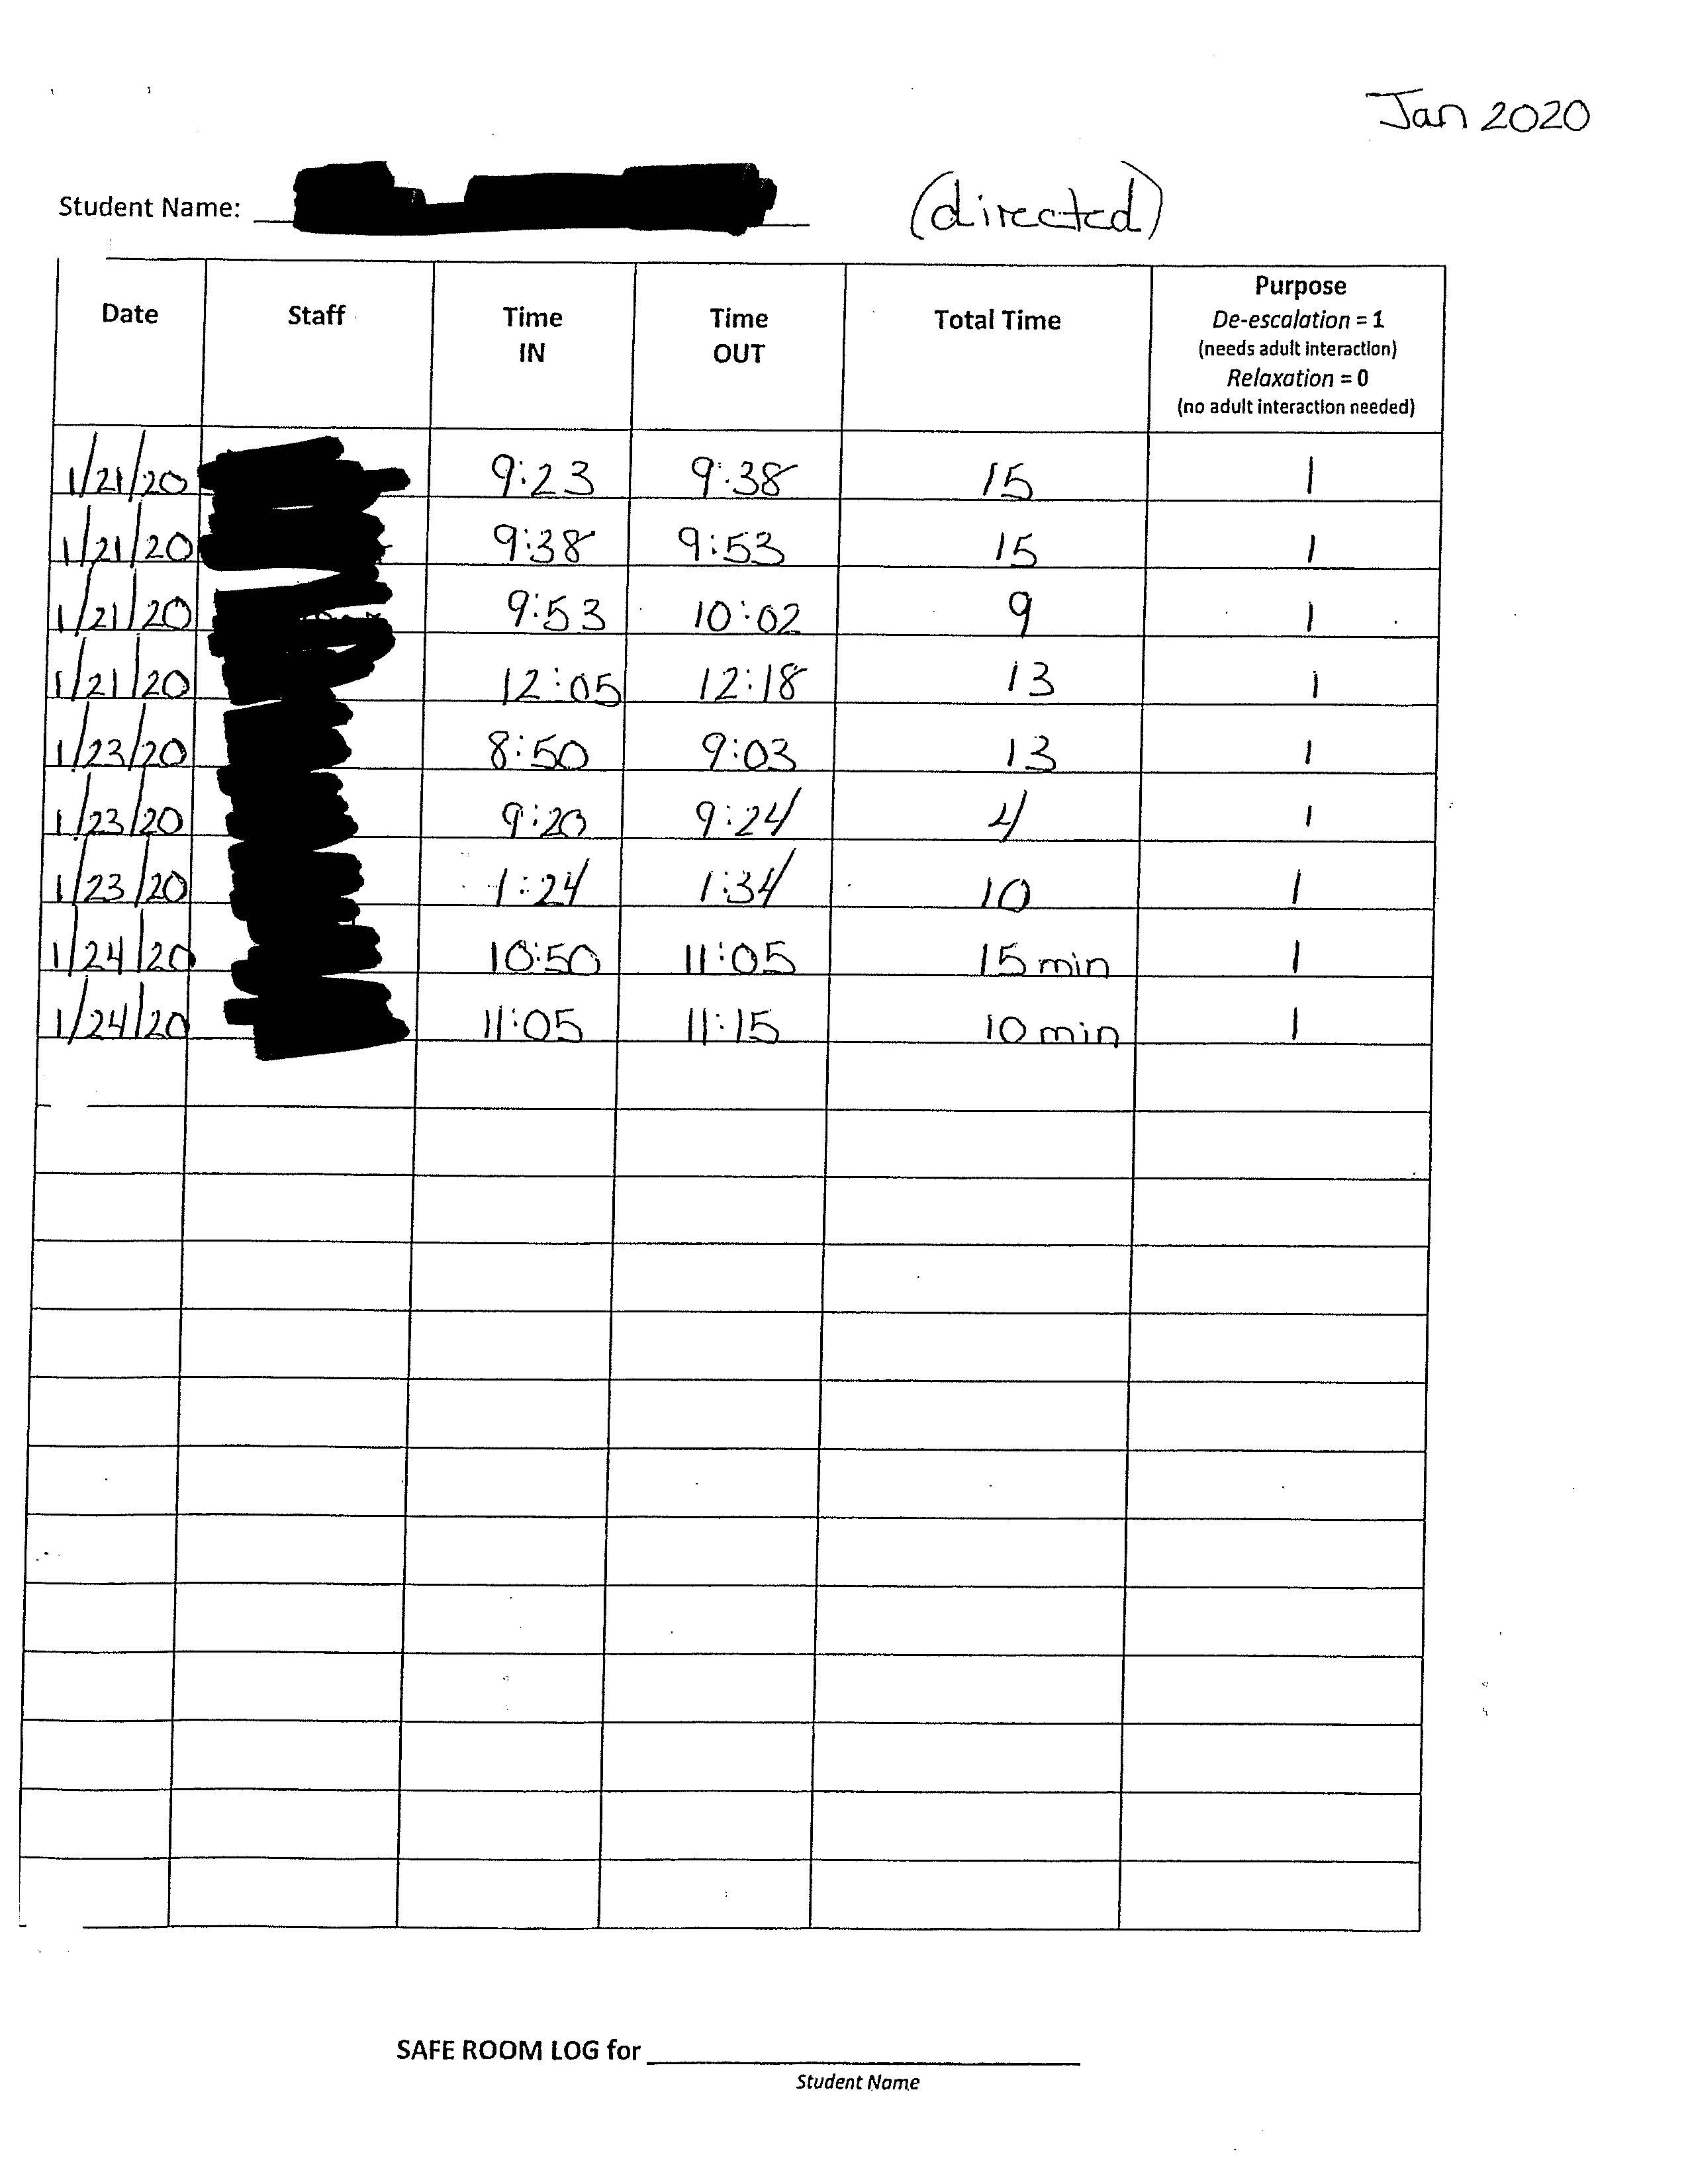 Jan 2020
Student Name: (directed)
Date Staff Time IN Time OUT Total Time Purpose
De-escalation = 1
(needs adult interaction)
Relaxation = 0
(no adult interaction needed)
1/21/20 9:23 9:38 15 1
1/21/20 9:38 9:53 15 1
1/21/20 9:53 10:02 9 1
1/21/20 12:05 12:18 13 1
1/23/20 8:50 9:03 13 1
1/23/20 9:20 9:24 4 1
1/23/20 1:24 1:34 10 1
1/24/20 10:50 11:05 15 min 1
1/24/20 11:05 11:15 10 min 1
SAFE ROOM LOG for
Student Name